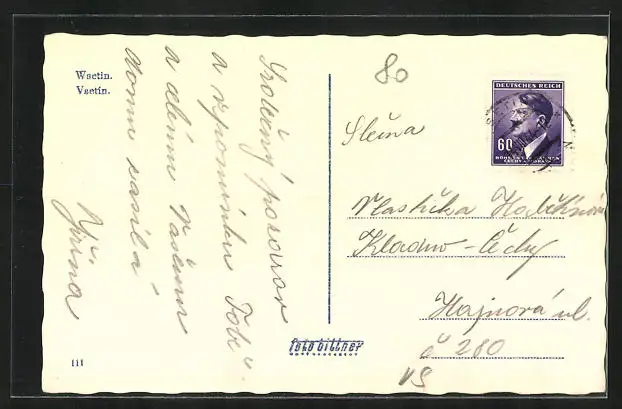 Wsetin.
Vsetín.
Srdečný pozdrav
a vzpomínku Tobě
a celému Vašemu
domu zasílá
Jiřina
111
foto bittner
80
DEUTSCHES REICH
60
BÖHMEN UND MÄHREN
ČECHY A MORAVA
Slečna
Vlastička
Kladno-Čechy
Hájnová ul.
č 280